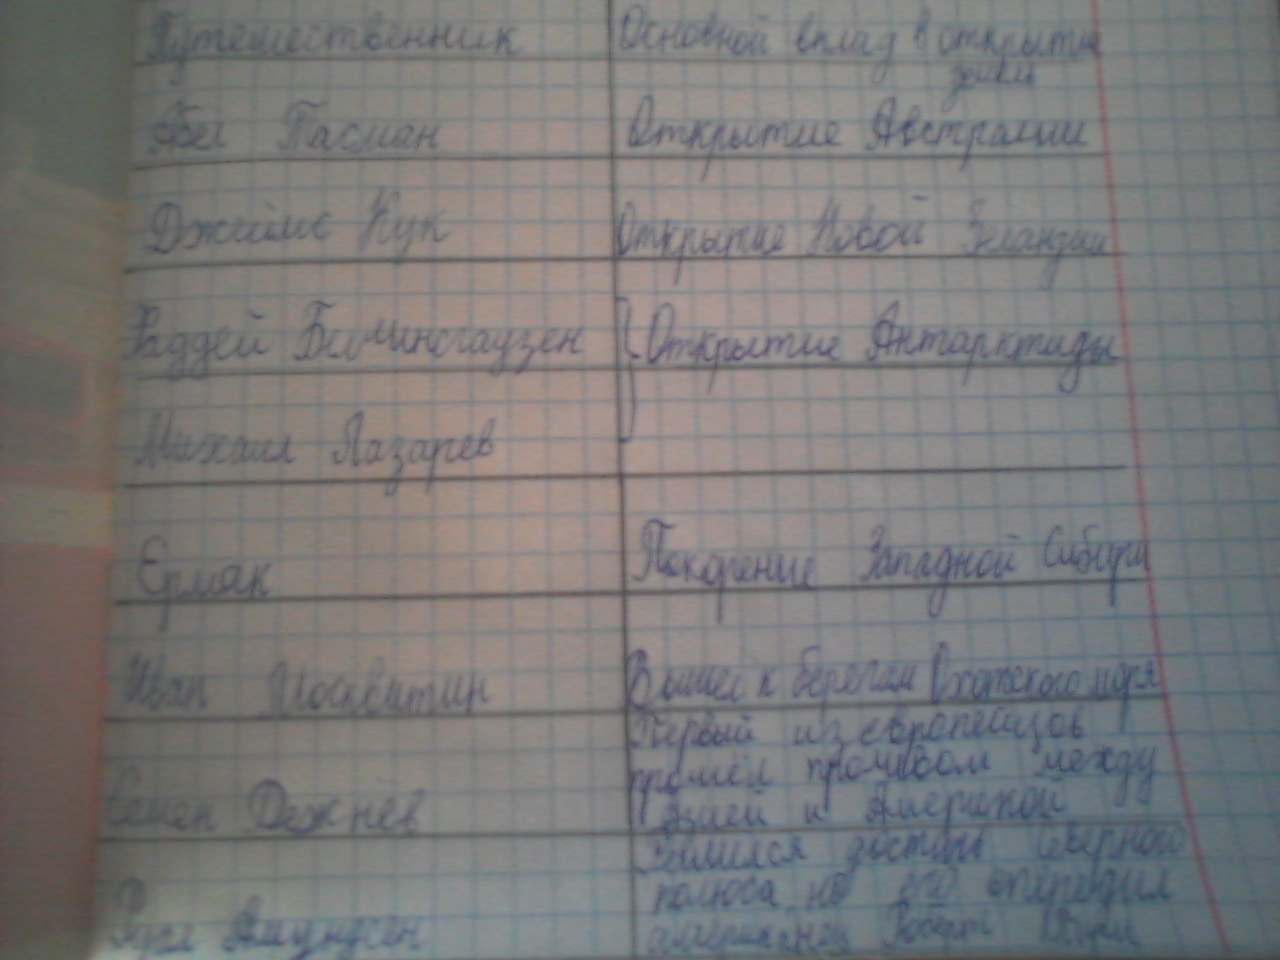 Путешественник Основной вклад в открытие
земли
Абел Тасман Открытие Австралии
Джеймс Кук Открытие Новой Зеландии
Фаддей Беллинсгаузен Открытие Антарктиды
Михаил Лазарев
Ермак Покорение Западной Сибири
Иван Москвитин Вышел к берегам Охотского моря
Первый из европейцов
прошёл проливом между
Семен Дежнёв Азией и Америкой
достичь Северного
полюса но его опередил
Руал Амундсен американец Роберт Пири